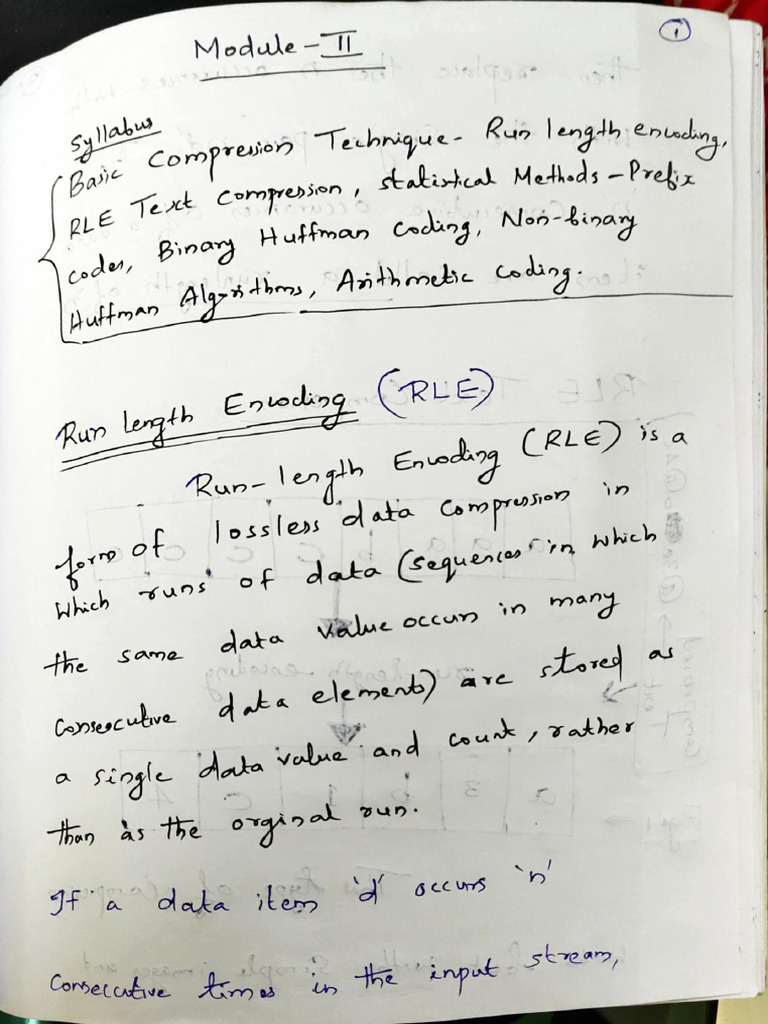 1
Module - II
Syllabus
Basic Compression Technique - Run length encoding,
RLE Text Compression, statistical Methods - Prefix
codes, Binary Huffman coding, Non-binary
Huffman Algorithms, Arithmetic coding.
Run length Encoding (RLE)
Run-length Encoding (RLE) is a
form of lossless data compression in
which runs of data (sequences in which
the same data value occurs in many
consecutive data elements) are stored as
a single data value and count, rather
than as the orginal run.
If a data item 'd' occurs 'n'
consecutive times in the input stream,